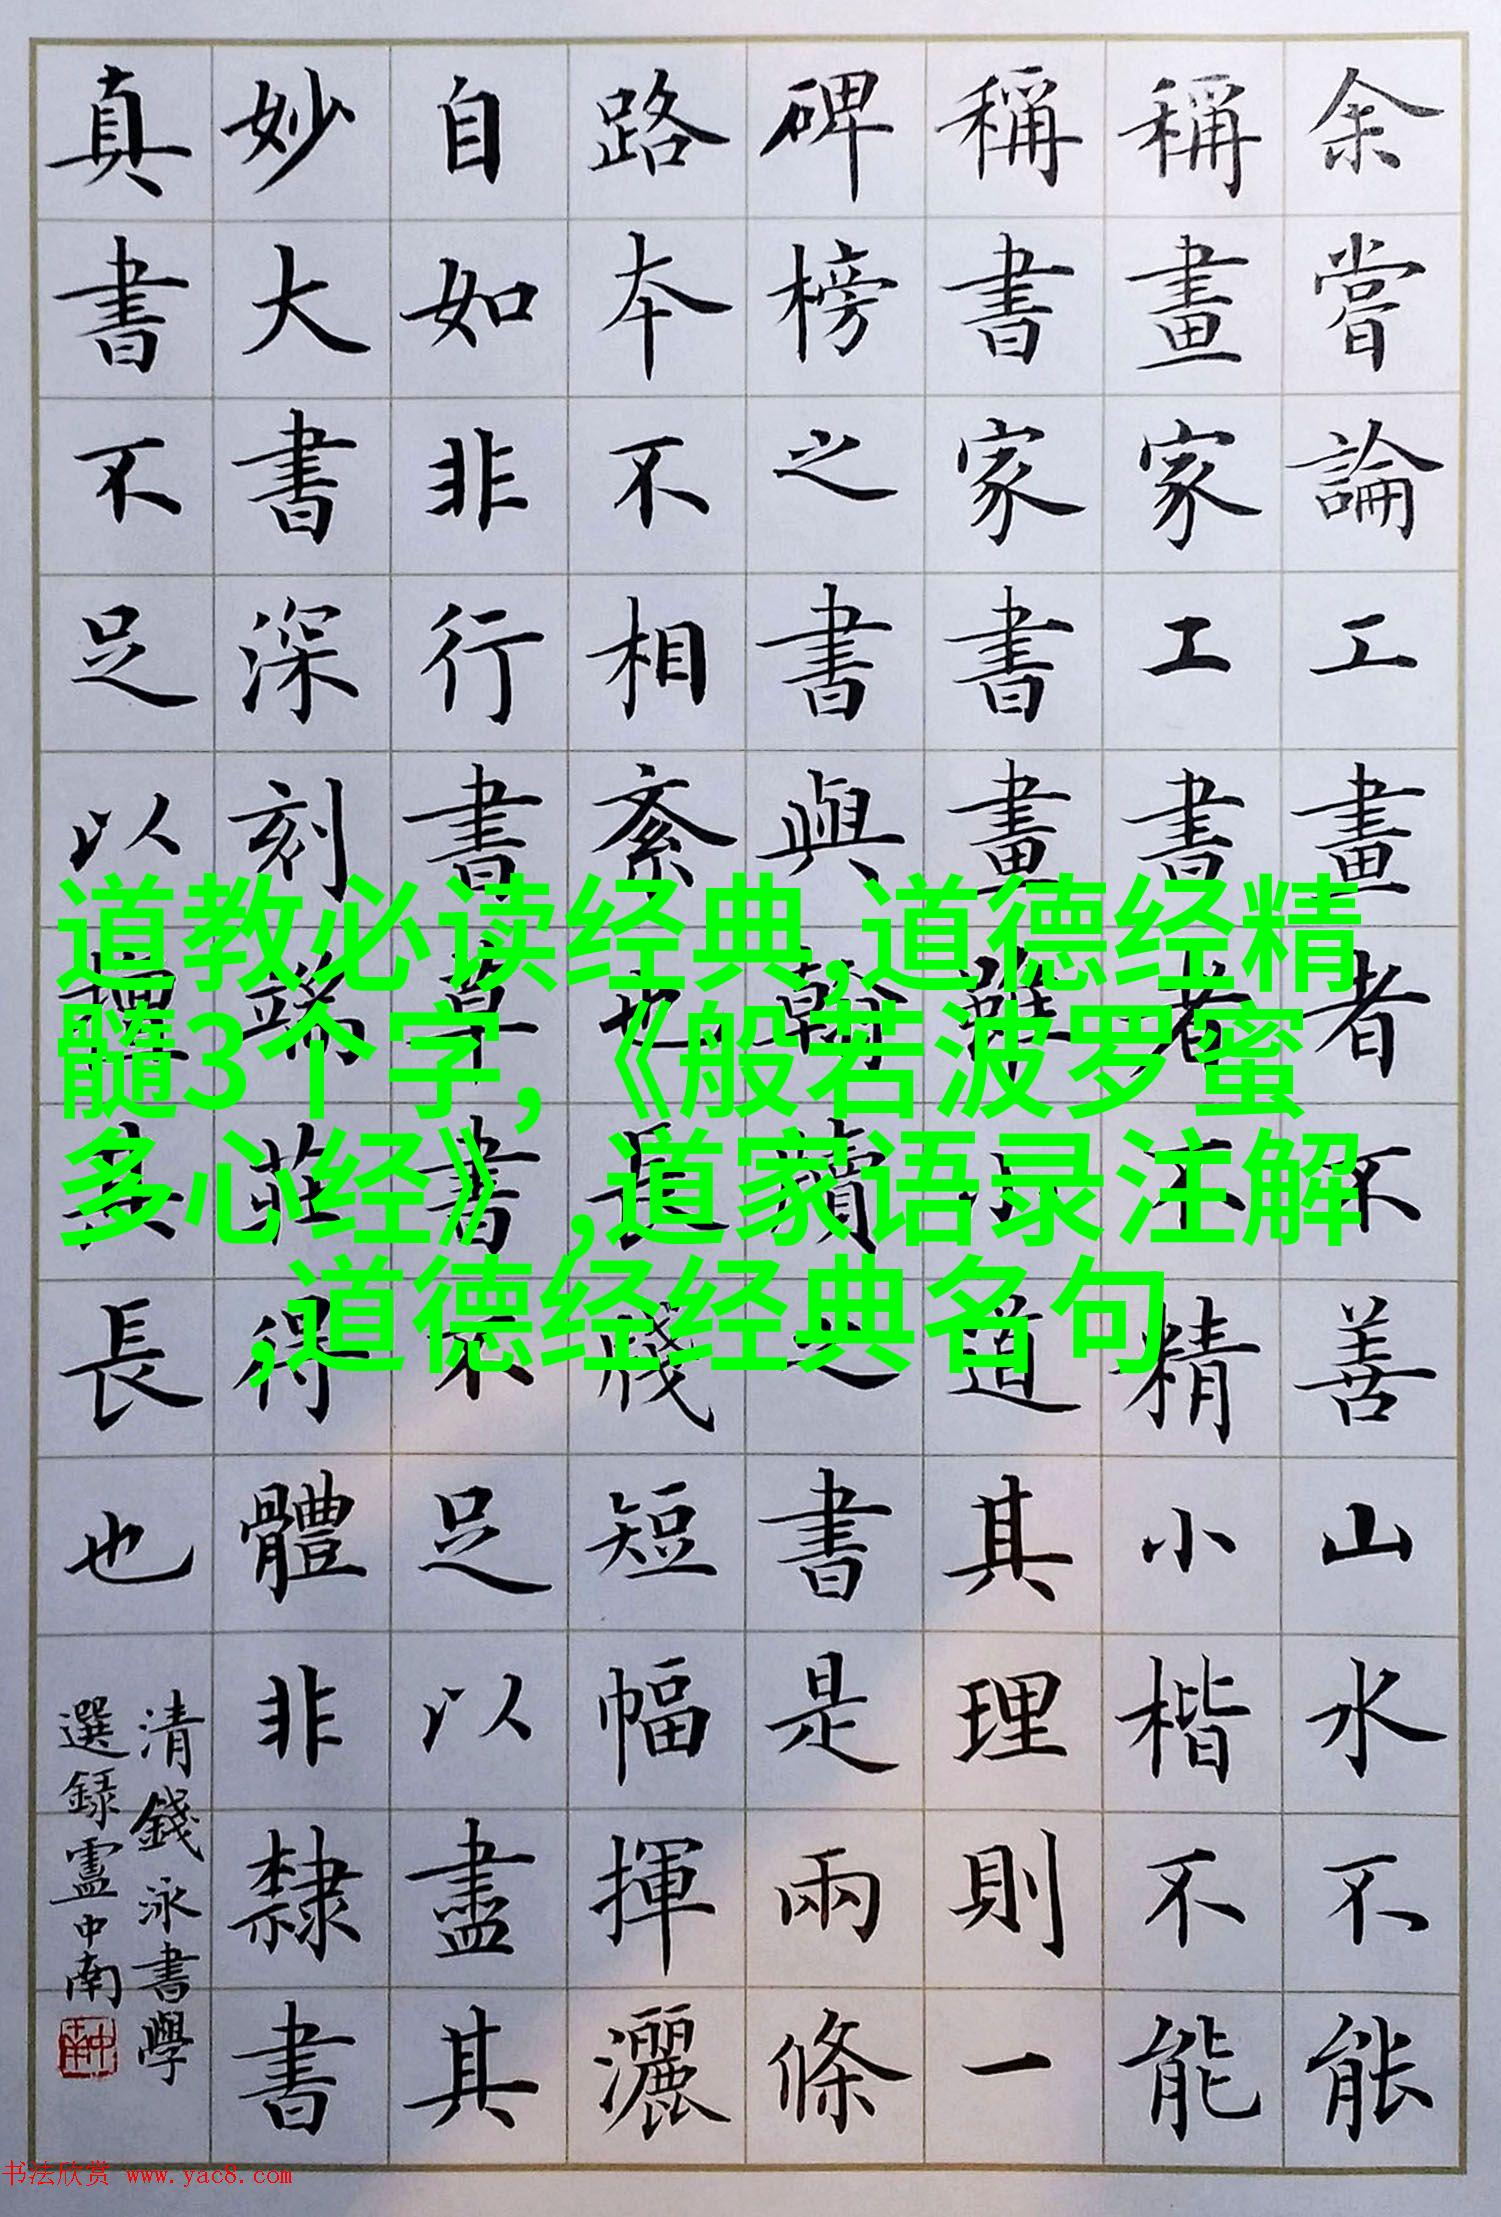 余嘗論工畫者不善山水不能
稱畫家工書者不精小楷不能
稱書家書畫雖小道其理則一
碑榜之書與翰牘之書是兩條
路本不相紊也長牋短幅揮灑
自如非行書草書不足以盡其
妙大書深刻端莊得體非隸書
真書不足以擅其長也
清錢泳書學
選錄盧中南
中南
道教必读经典,道德经精
髓3个字,《般若波罗蜜
多心经》,道家语录注解
,道德经经典名句
书法欣赏 www.yac8.com